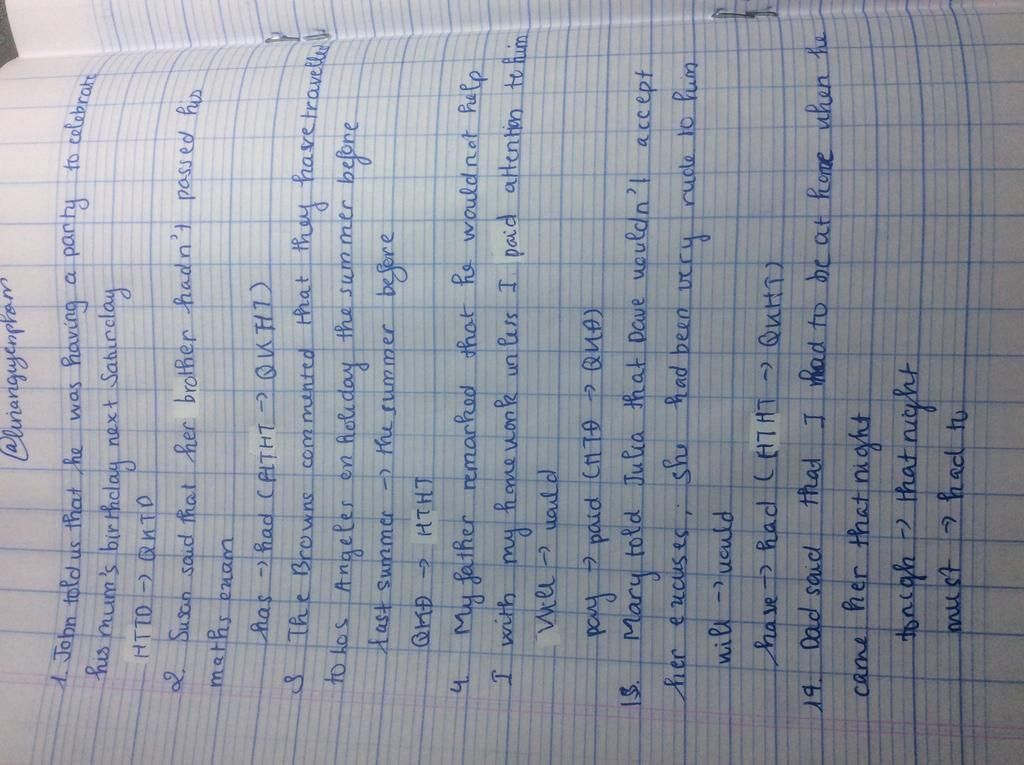 @linanguyenpham
1. John told us that he was having a party to celebrate
his mum's birthday next Saturday
HTTD -> QKTD
2. Susan said that her brother hadn't passed his
maths exam
has -> had (HTHT -> QKHT)
3 The Browns commented that they have travelled
to Los Angeler on holiday the summer before
last summer -> the summer before
QKĐ -> HTHT
4. My father remarked that he would not help
I with my homework unless I paid attention to him
Will -> would
pay -> paid (HTĐ -> QKĐ)
13. Mary told Julia that Dave wouldn't accept
her excuses; She had been very rude to him
will -> would
have -> had (HTHT -> QKHT)
14. Dad said that I had to be at home when he
came her that night
tonigh -> that night
must -> had to